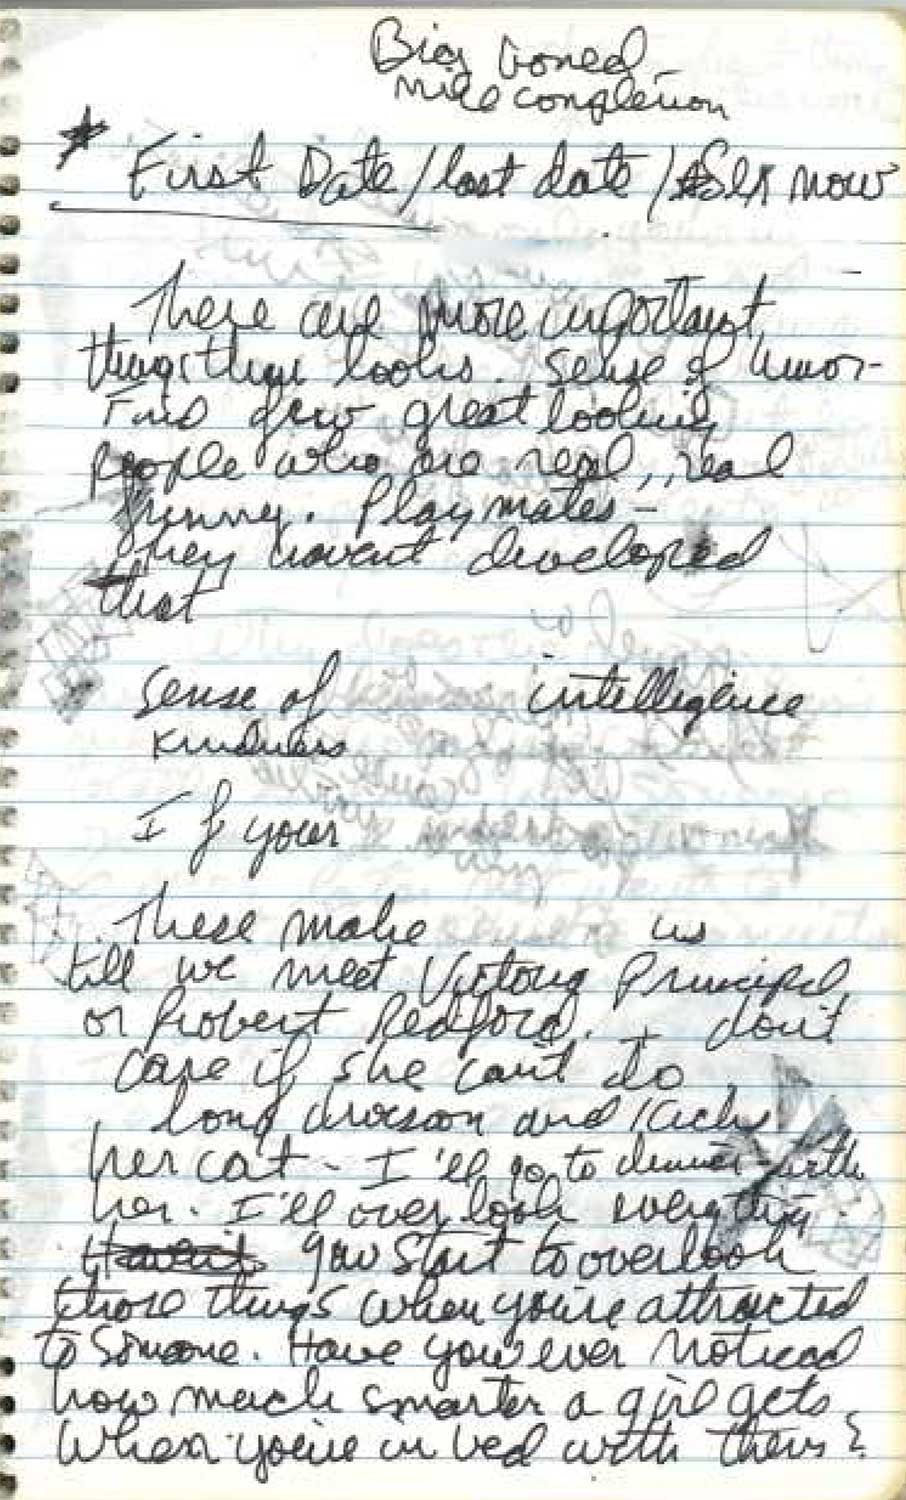 Big boned
nice complexion
* First Date / last date / Sex now
There are more important
things than looks. Sense of humor-
Find few great looking
people who are real, real
funny. Playmates -
they havent developed
that
sense of intelligence
kindness
If your
These make us
till we meet Victoria Principal
or Robert Redford. I don't
care if she can't do
long division and kicks
her cat - I'll go to dinner with
her. I'll over look everything.
you start to overlook
those things when you're attracted
to someone. Have you ever noticed
how much smarter a girl gets
when you're in bed with them?